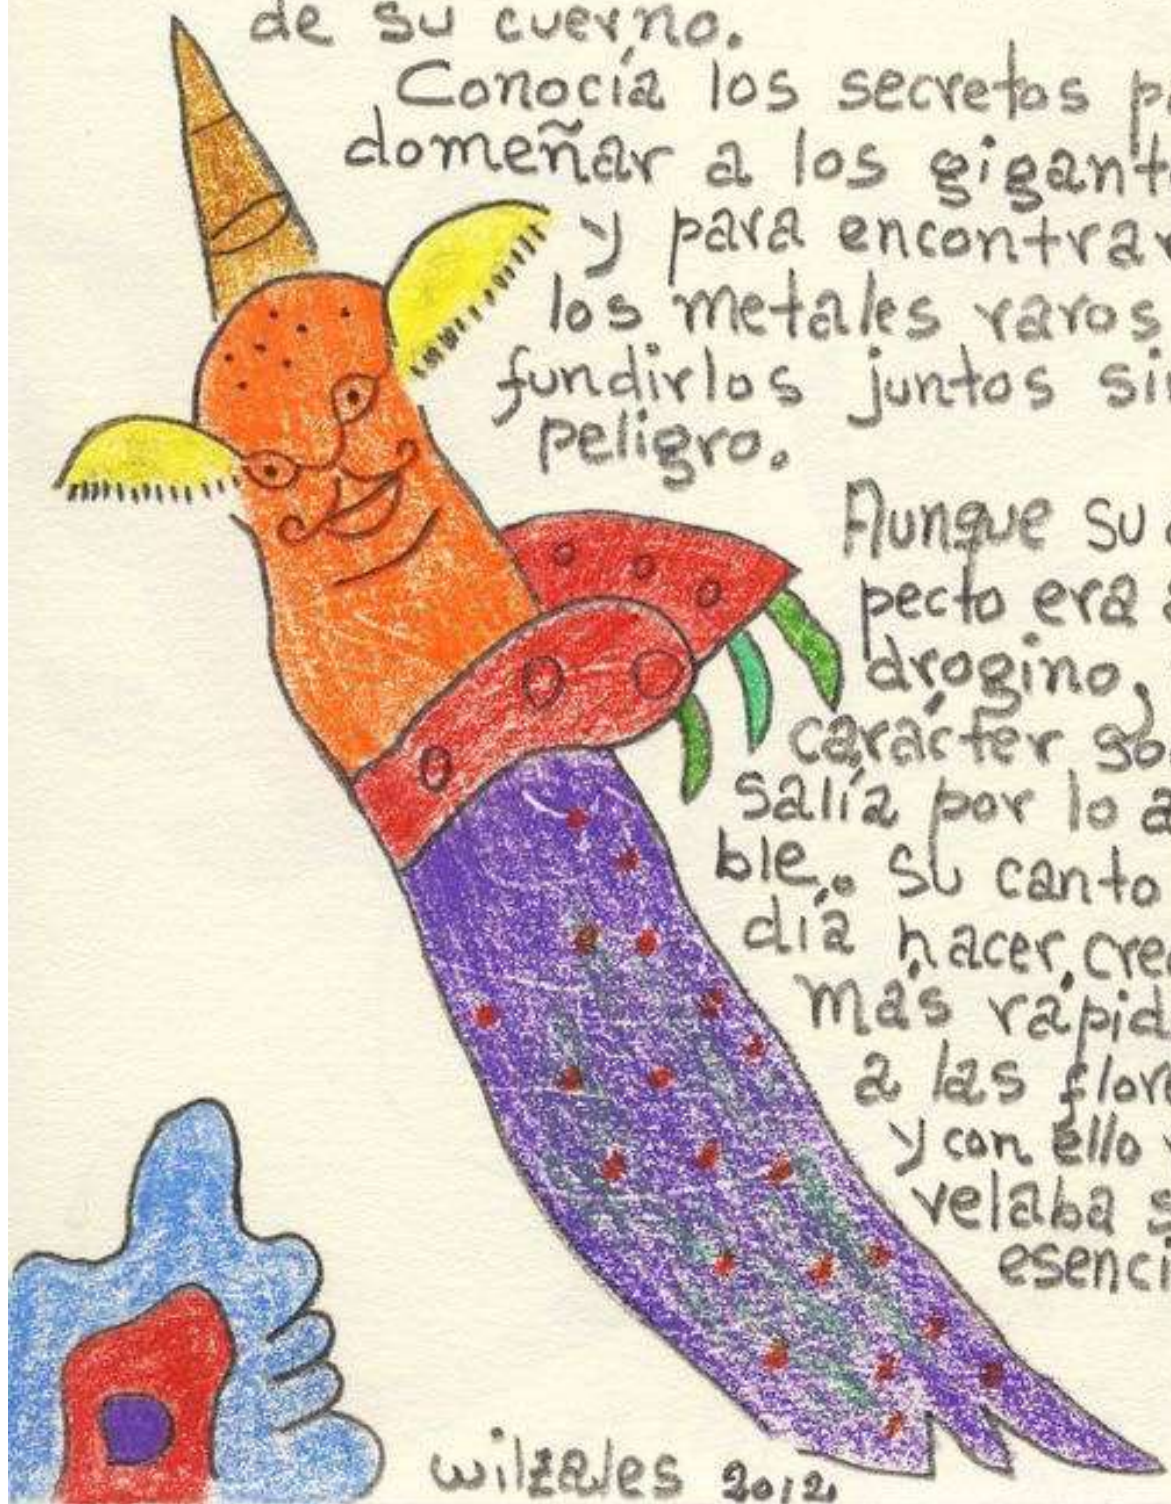 de su cuerno.
Conocía los secretos p
domeñar a los gigant
y para encontrar
los metales raros
fundirlos juntos si
peligro.
Aunque su
pecto era
drogino,
carácter so
salía por lo a
ble. Su canto
día hacer crec
más rápid
a las flor
y con ello
velaba s
esenci
wilzales 2012